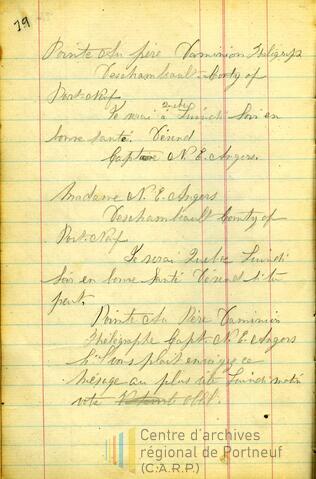 29
Pointe Au père Dominion Thélégraph
Deschambault Conty of
Port-Neuf
Je serai à Québec Lundi Soir en
bonne santé. Vérend
Captane N. E. Angers.
Madame N. E. Angers
Deschambault Conty of
Port-Neuf
Je serai Quebec Lundi
Soir en bonne Santé Vérend si tu
peut.
Pointe Au Père Dominion
Thélégraphe Capt. N. E. Angers
S'il vous plait envoiyes ce
mésage au plus vite Lundi matin
vote
Centre d'archives
régional de Portneuf
(C.A.R.P.)